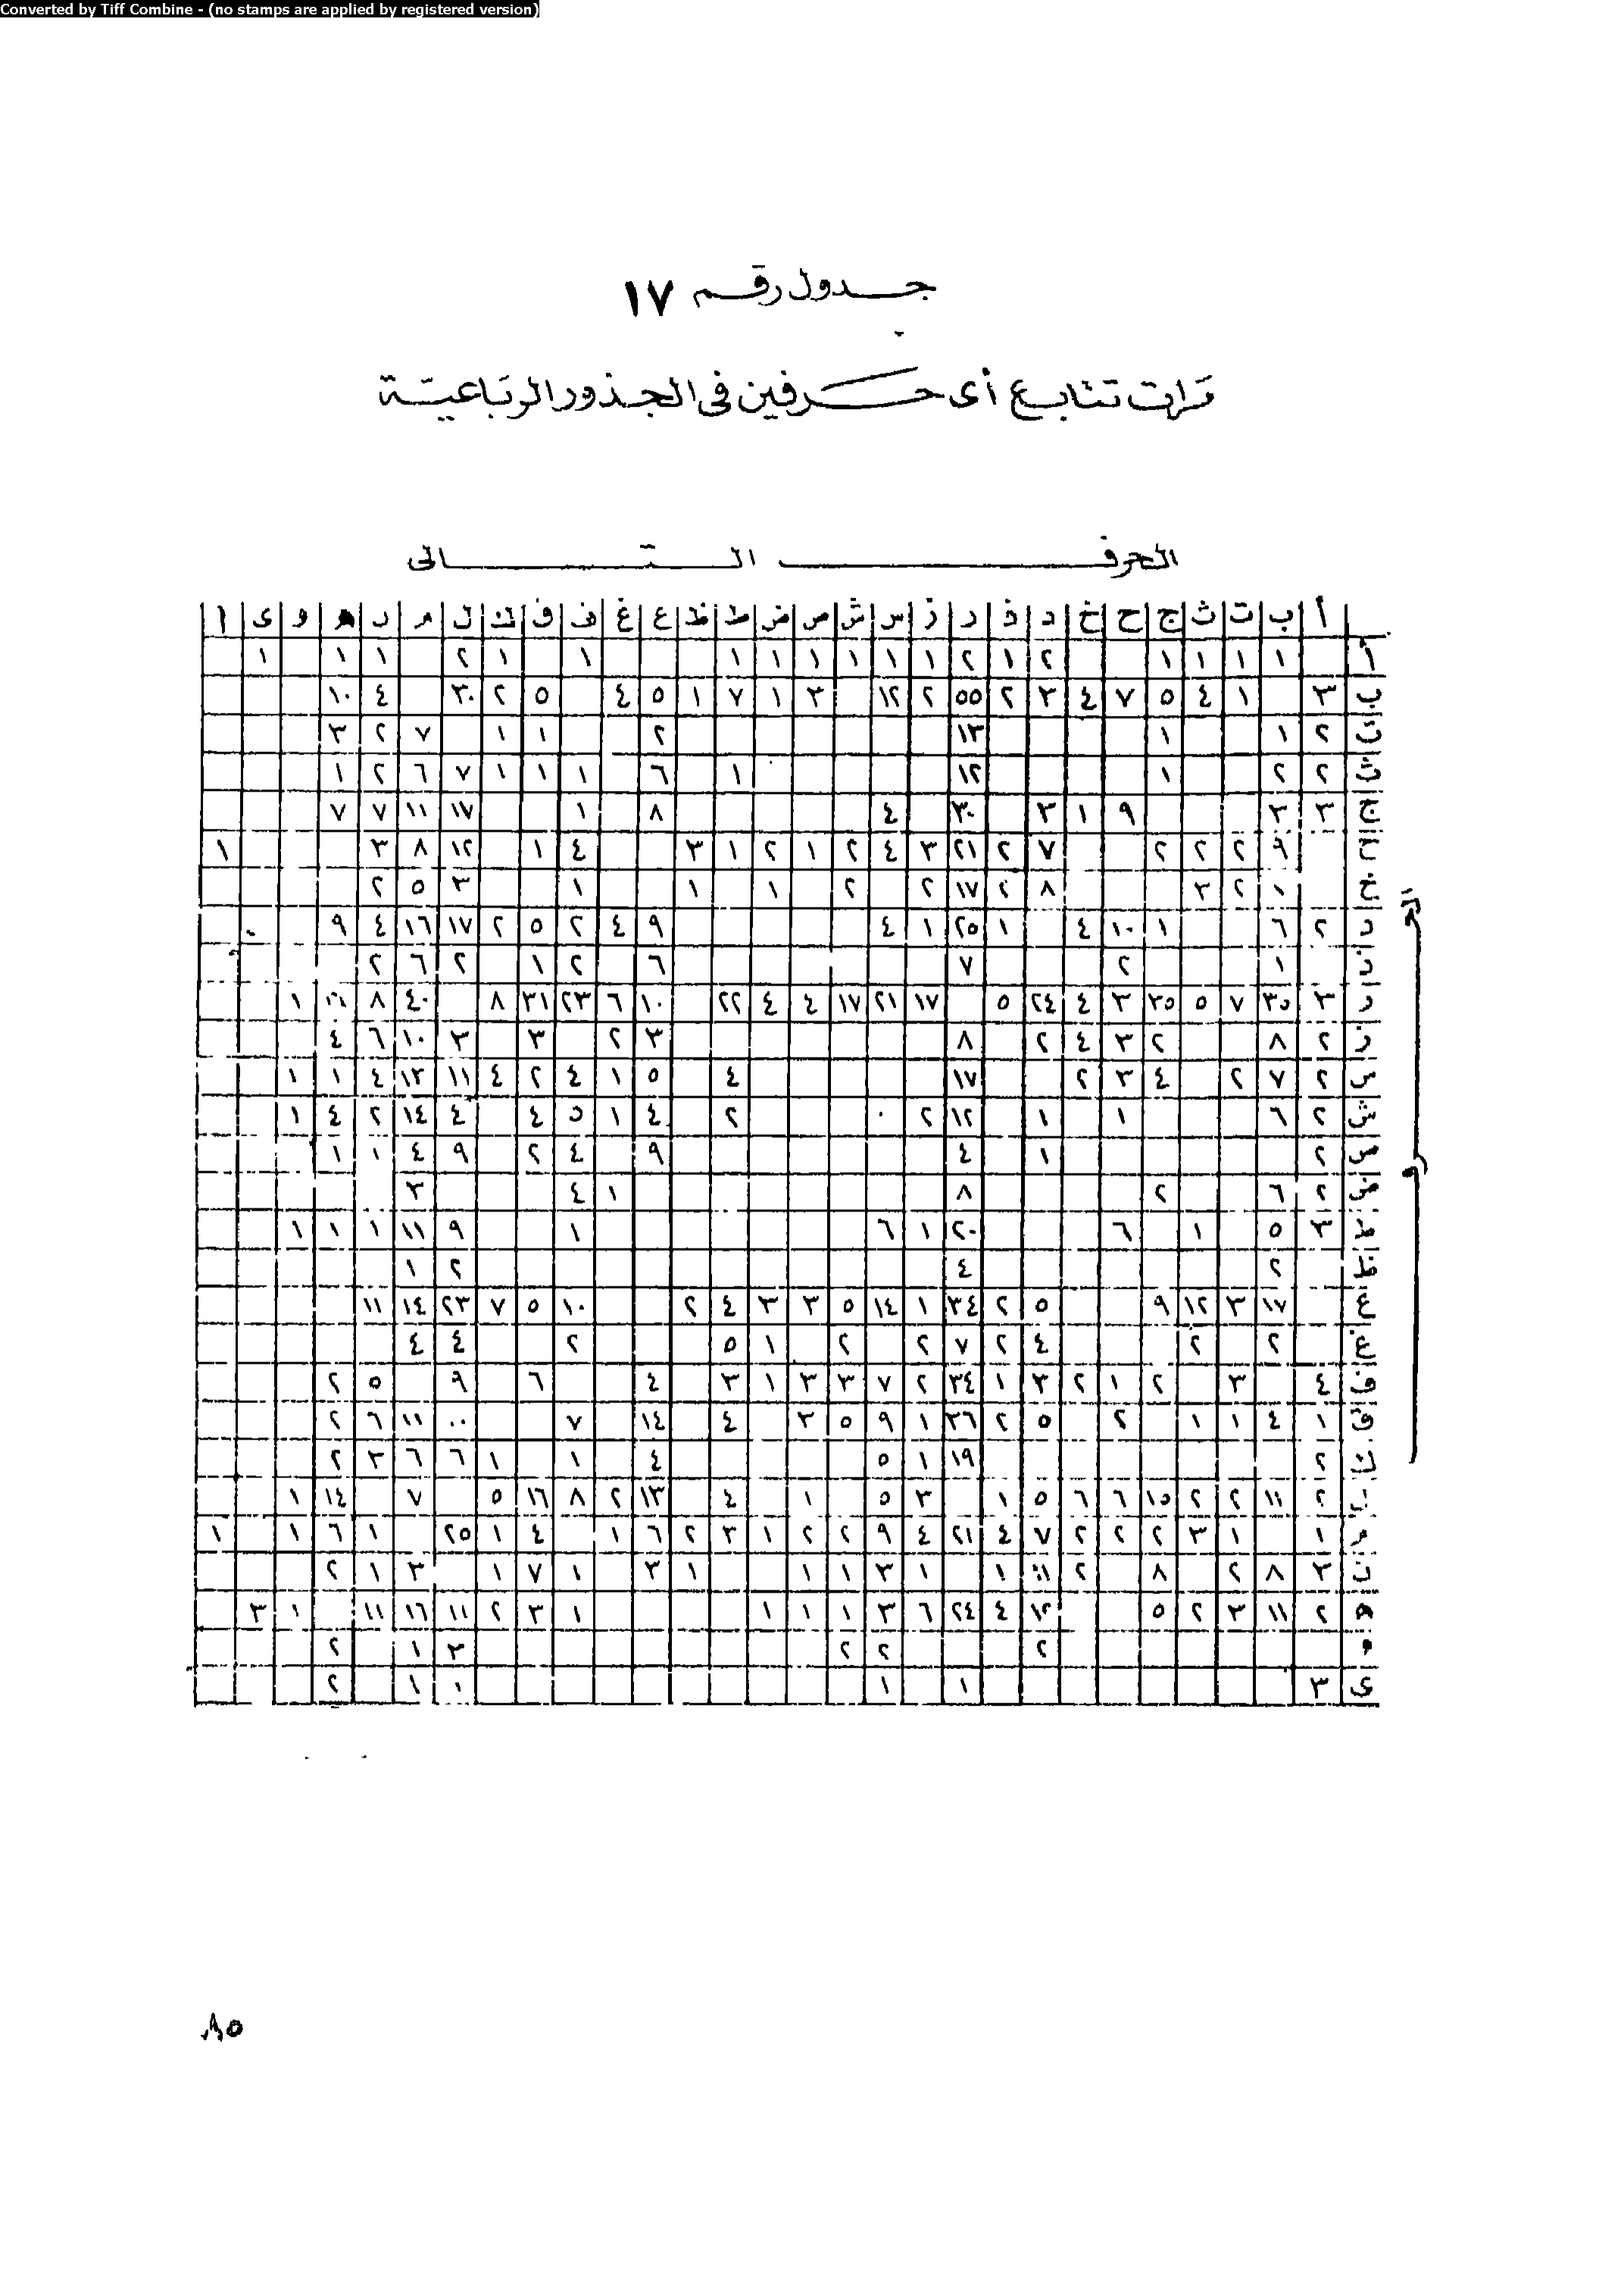 Converted by Tiff Combine - (no stamps are applied by registered version)
جدول رقم ١٧
مرات تتابع أى حرفين فى الجذور الرباعية
الحرف التالى
أ ب ت ث ج ح خ د ذ ر ز س ش ص ض ط ظ ع غ ف ق ك ل م ن ه و ى ا
أ ١ ١ ١ ١ ٢ ١ ٢ ١ ١ ١ ١ ١ ١ ١ ١ ٢ ١ ١ ١
ب ٣ ١ ٤ ٥ ٧ ٤ ٣ ٢ ٥٥ ٢ ١٢ ٣ ١ ٧ ١ ٥ ٤ ٥ ٢ ٣٠ ٤ ١٠
ت ٢ ١ ١ ١٣ ٢ ١ ١ ٧ ٢ ٣
ث ٢ ٢ ١ ١٢ ١ ٦ ١ ١ ١ ٧ ٦ ٢ ١
ج ٣ ٣ ٩ ١ ٣ ٣٠ ٤ ٨ ١ ١٧ ١١ ٧ ٧
ح ٩ ٢ ٢ ٢ ٧ ٢ ٢١ ٣ ٤ ٢ ١ ٢ ١ ٣ ٤ ١ ١٢ ٨ ٣ ١
خ ١ ٢ ٣ ٨ ٢ ١٧ ٢ ٢ ١ ١ ١ ٣ ٥ ٢
د ٢ ٦ ١ ١٠ ٤ ١ ٢٥ ١ ٤ ٩ ٤ ٢ ٥ ٢ ١٧ ١٦ ٤ ٩
ذ ١ ٢ ٧ ٦ ٢ ١ ٢ ٦ ٢
ر ٣ ٣٥ ٧ ٥ ٢٥ ٣ ٤ ٢٤ ٥ ١٧ ٢١ ١٧ ٤ ٤ ٢٢ ١٠ ٦ ٢٣ ٣١ ٨ ٤٠ ٨ ١
ز ٢ ٨ ٢ ٣ ٤ ٢ ٨ ٣ ٢ ٣ ٣ ١٠ ٦ ٤
س ٢ ٧ ٢ ٤ ٣ ٢ ١٧ ٤ ٥ ١ ٤ ٢ ٤ ١١ ١٢ ٤ ١ ١
ش ٢ ٦ ١ ١ ١٢ ٢ ٢ ٤ ١ ٥ ٤ ٤ ١٤ ٢ ٤ ١
ص ٢ ١ ٤ ٩ ٤ ٢ ٩ ٤ ١ ١
ض ٢ ٦ ٢ ٨ ١ ٤ ٣
ط ٣ ٥ ١ ٦ ٢٠ ١ ٦ ١ ٩ ١١ ١ ١ ١
ظ ٢ ٤ ٢ ١
ع ١٧ ٣ ١٢ ٩ ٥ ٢ ٣٤ ١ ١٤ ٥ ٣ ٣ ٤ ٢ ١٠ ٥ ٧ ٢٣ ١٤ ١١
غ ٢ ٢ ٤ ٢ ٧ ٢ ٢ ١ ٥ ٢ ٤ ٤
ف ٤ ٣ ٢ ١ ٢ ٣ ١ ٣٤ ٢ ٧ ٣ ٣ ١ ٣ ٤ ٦ ٩ ٥ ٢
ق ١ ٤ ١ ١ ٢ ٥ ٢ ٢٦ ١ ٩ ٥ ٣ ٤ ١٤ ٧ ١١ ٦ ٢
ك ٢ ١٩ ١ ٥ ٤ ١ ١ ٦ ٦ ٣ ٢
ل ٢ ١١ ٢ ٢ ١٥ ٦ ٦ ٥ ١ ٣ ٥ ١ ٤ ١٣ ٢ ٨ ١٦ ٥ ٧ ١٤ ١
م ١ ١ ٣ ٢ ٢ ٢ ٧ ٤ ٢١ ٤ ٩ ٢ ٢ ١ ٣ ٢ ٦ ١ ٤ ١ ٢٥ ١ ٦ ١ ١
ن ٣ ٨ ٢ ٨ ٢ ١١ ١ ١ ٣ ١ ١ ١ ٣ ١ ٧ ١ ٣ ١ ٢
ه ٢ ١١ ٣ ٢ ٥ ١٢ ٤ ٢٤ ٦ ٣ ١ ١ ١ ١ ٣ ٢ ١١ ١٦ ١١ ١ ٣
و ٢ ٢ ٢ ٣ ١ ٢
ى ٣ ١ ١ ١ ١ ٢
٨٥